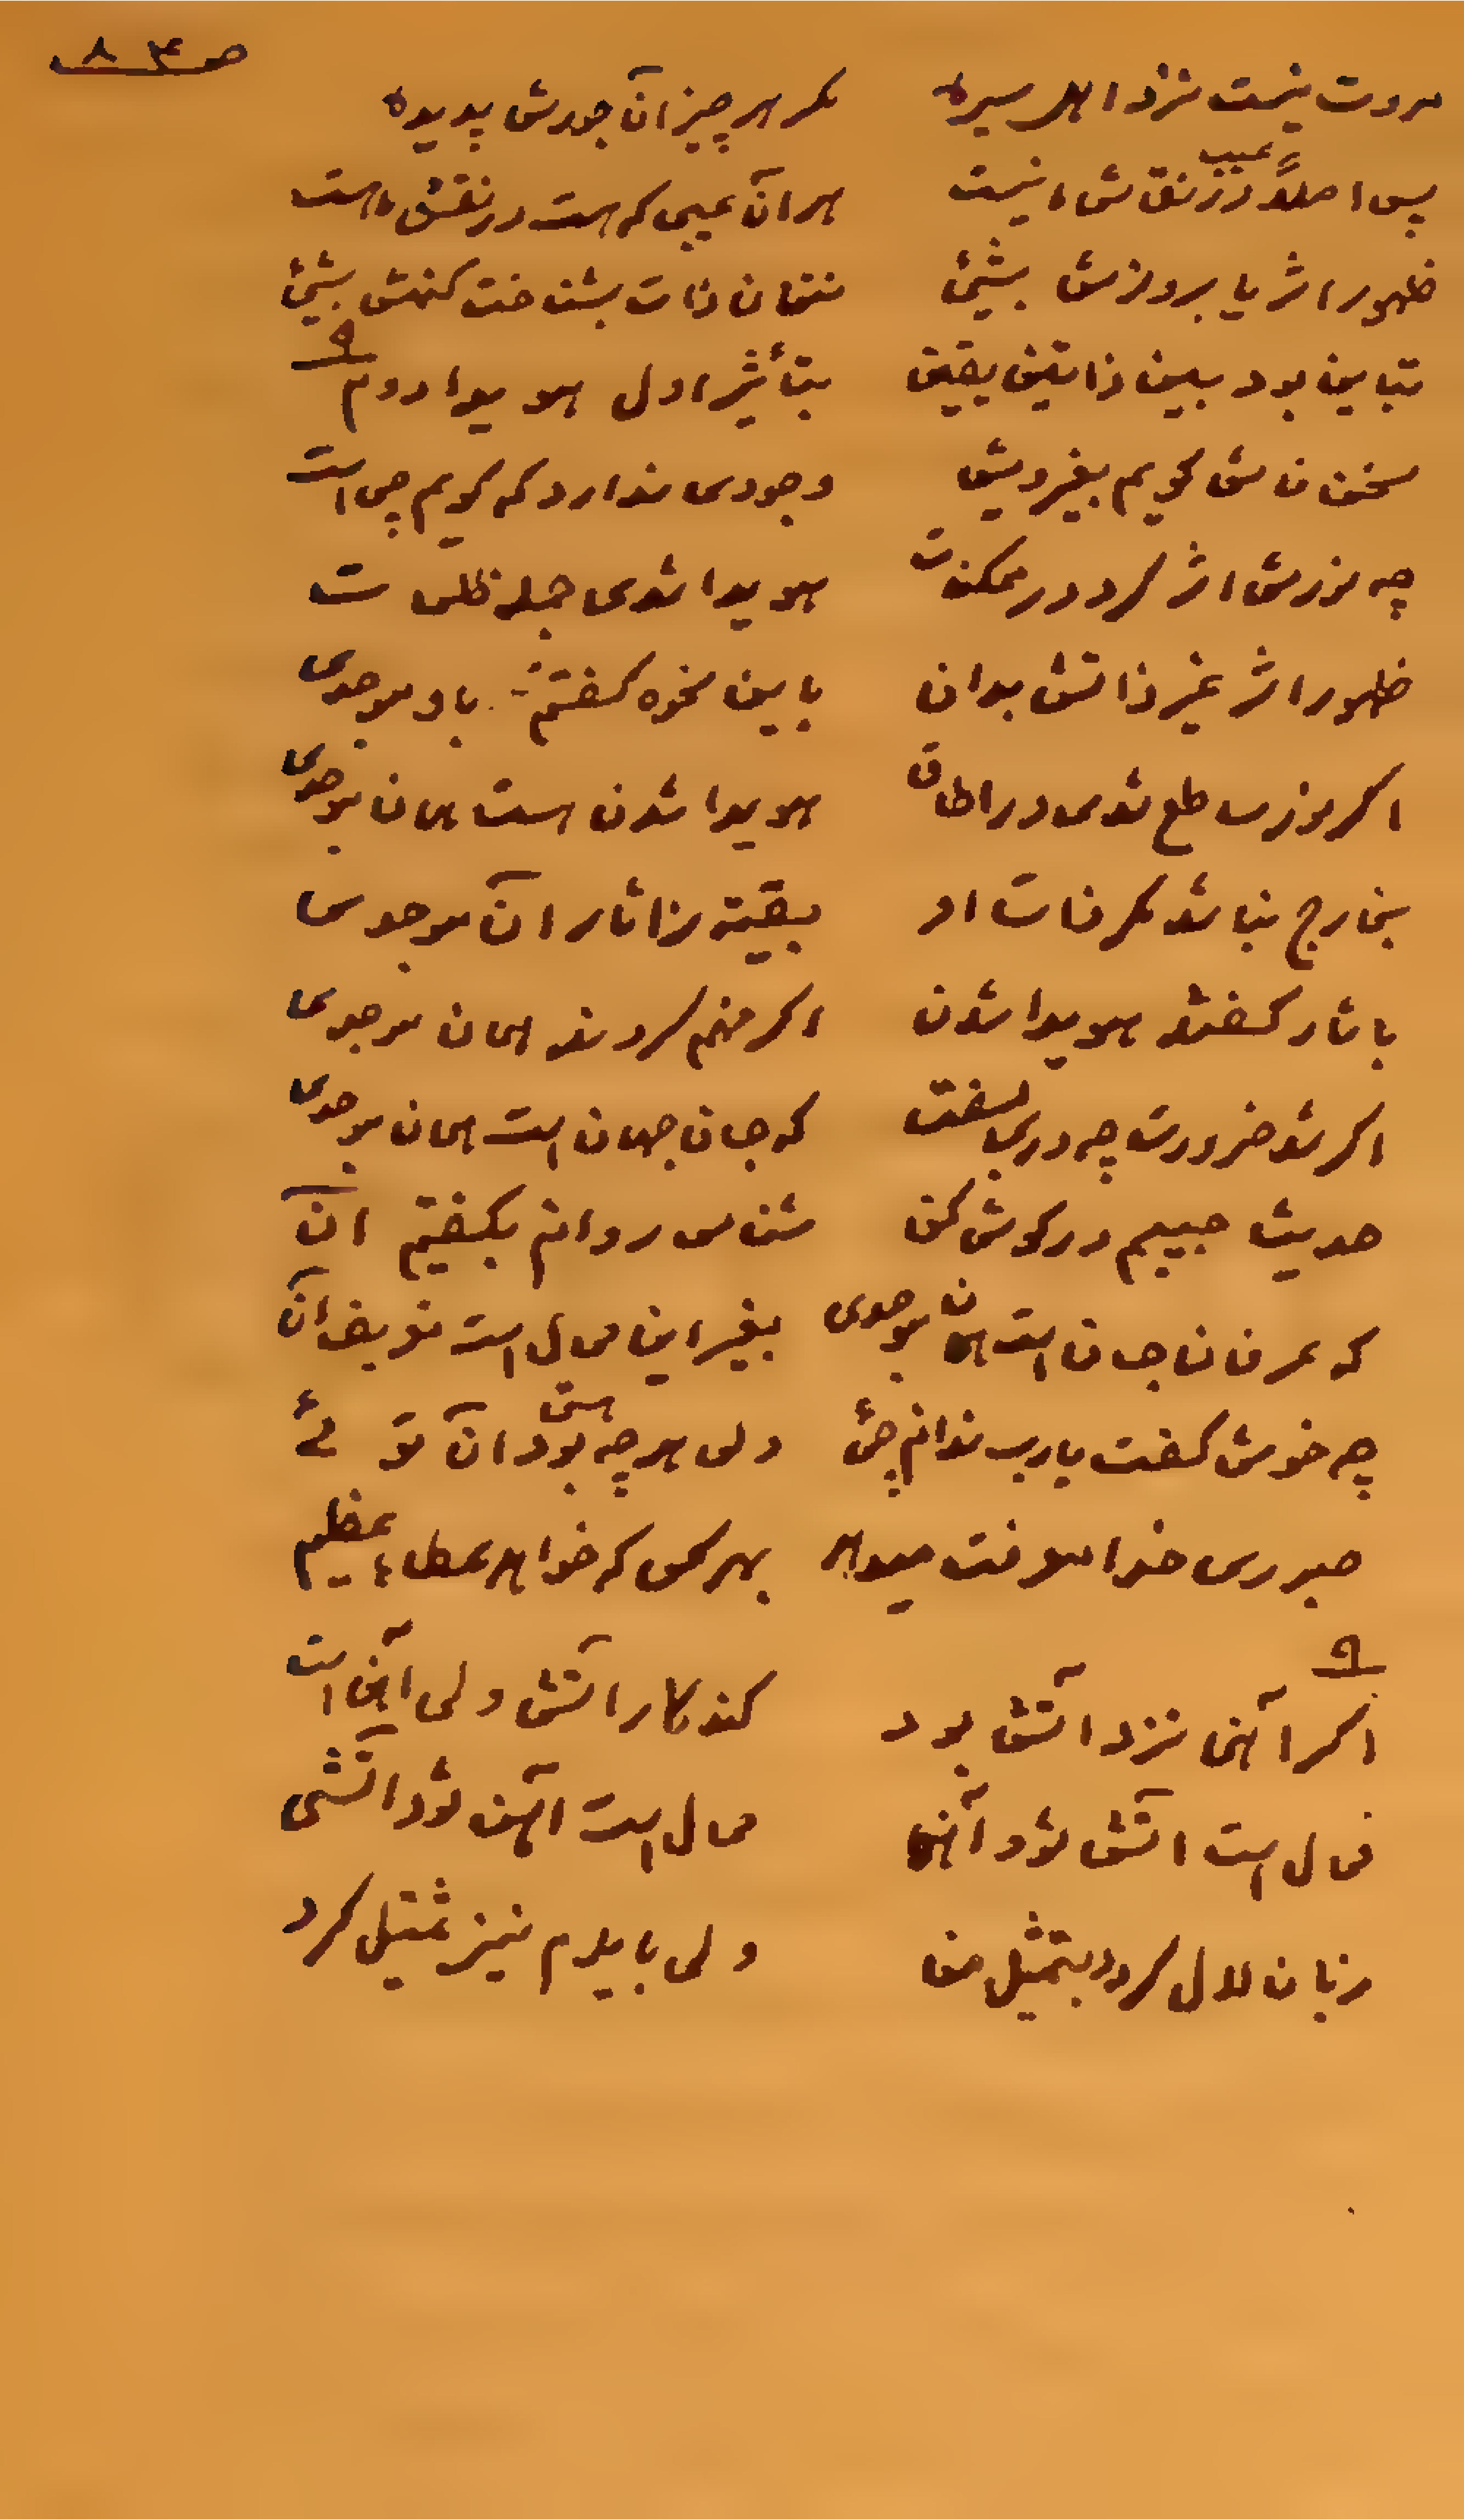 ص ۸۴
مروت نیست نزد اهل سیره مگر هر چیز آن جودش پدیده
پس اصلاً عیب در نقاش ما نیست هر آن عیبی که هست در نقش ماهست
ظهور اثر یا بروزش بشیئ نتوان ذات بشناخت کنهش بشیئ
تباین بود بین ذاتین یقین بتأثیر اول هویدا دوم
سخن فاش گویم بغیر ویش وجودی ندارد که گویم چی است
چه نورش اثر کرد در ممکنات هویدا شدی جمله ظلمات
ظهور اثر غیر ذاتش بدان باین نحوه گفتم باو موجدی
اگر نور ساطع شدی در اطاق هویدا شدن است همان موجدی
بخارج نباشد مگر ذات او بقیه ز اثار آن موجدی
باثار گفتند هویدا شدن اگر فهم کردند همان موجدی
اگر شد ضرورت چه دری بسفت که جان جهان است همان موجدی
حدیث حبیبم در گوش کن شناس روانم بگفتیم آن
که عرفان جان است همان موجدی بغیر این محال است تعریف آن
چه خوش گفت یارب ندانم چئ ولی هرچه هستی بود آن تو ئے
صبوری خدا معرفت میدهد بهر کس که خواهد عطاء عظیم
اگر آهن نزد آتش بود کند کار آتش ولی آهن است
محال است آتش شود آهن محال است آهن شود آتشی
زبان لال گردد بتمثیل من ولی بایدم نیز تمثیل کرد